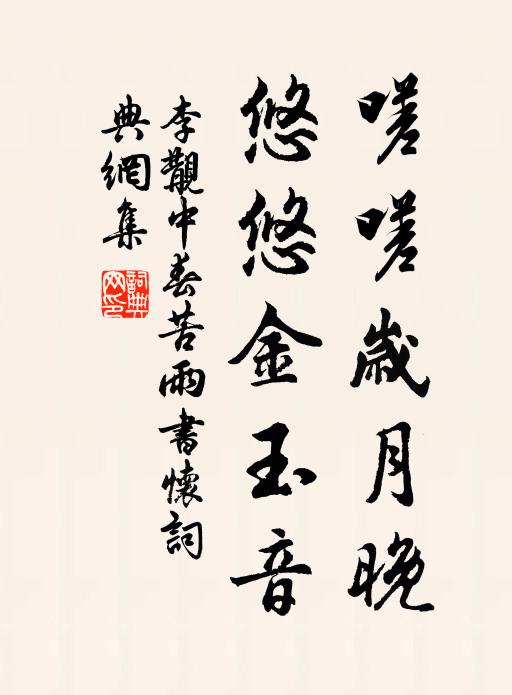 嗟嗟歲月晚
悠悠金玉音
李觀中春苦雨書懷詞
典網集
詞典
网印